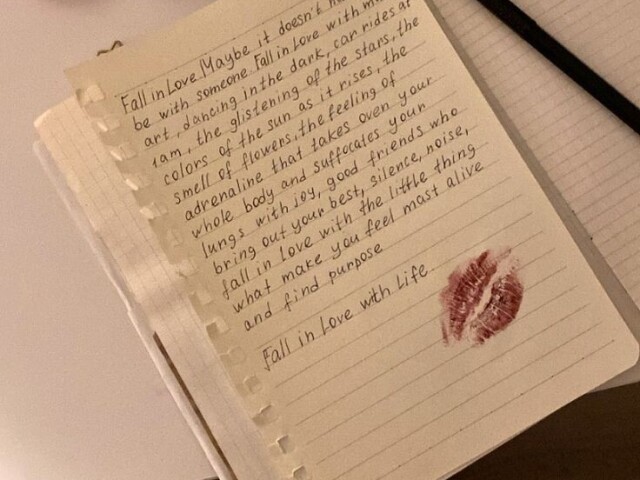 Fall in Love. Maybe it doesn't
be with someone Fall in Love with
art, dancing in the dark, car rides at
1am, the glistening of the stars, the
colors of the sun as it rises, the
smell of flowers, the feeling of
adrenaline that takes over your
whole body and suffocates your
lungs with joy, good friends who
bring out your best, silence, noise,
fall in love with the little thing
what make you feel mast alive
and find purpose
Fall in Love with Life